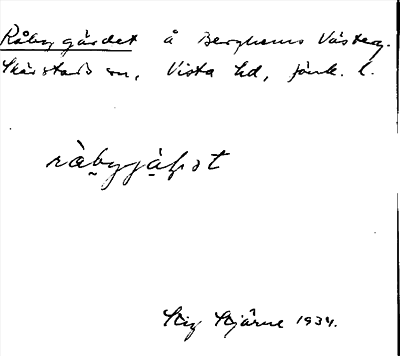 Råbygärdet å Berghems Västerg.
Skärstads sn, Vista hd, Jönk. l.
ràbyjàɧət
Stig Stjärne 1934.